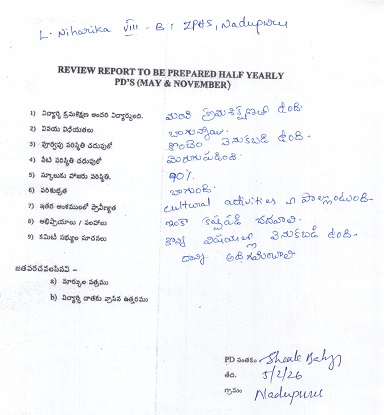 L. Niharika VIII - B: ZPHS, Nadupuru
REVIEW REPORT TO BE PREPARED HALF YEARLY
PD'S (MAY & NOVEMBER)
1) విద్యార్థి క్రమశిక్షణ అందరి విద్యార్థులది. మంచి క్రమశిక్షణతో ఉంది.
2) విషయ విధేయతలు బాగున్నాయి.
3) పూర్వపు పరిస్థితి చదువులో కొంచెం వెనుకబడి ఉంది.
4) నేటి పరిస్థితి చదువులో మెరుగుపడింది.
5) స్కూలుకు హాజరు పరిస్థితి. 90%
6) పరిశుభ్రత బాగుంది.
7) ఇతర అంశములలో ప్రావీణ్యత cultural activities లో పాల్గొంటుంది.
8) అభిప్రాయాలు / సలహాలు ఇంకా కష్టపడి చదవాలి.
9) కమిటీ సభ్యుల సూచనలు కొన్ని విషయాల్లో వెనుకబడి ఉంది.
దాన్ని అధిగమించాలి
జతపరచవలసినవి –
a) మార్కుల పత్రము
b) విద్యార్థి దాతకు వ్రాసిన ఉత్తరము
PD సంతకం
తేది. 5/2/26
గ్రామం Nadupuru